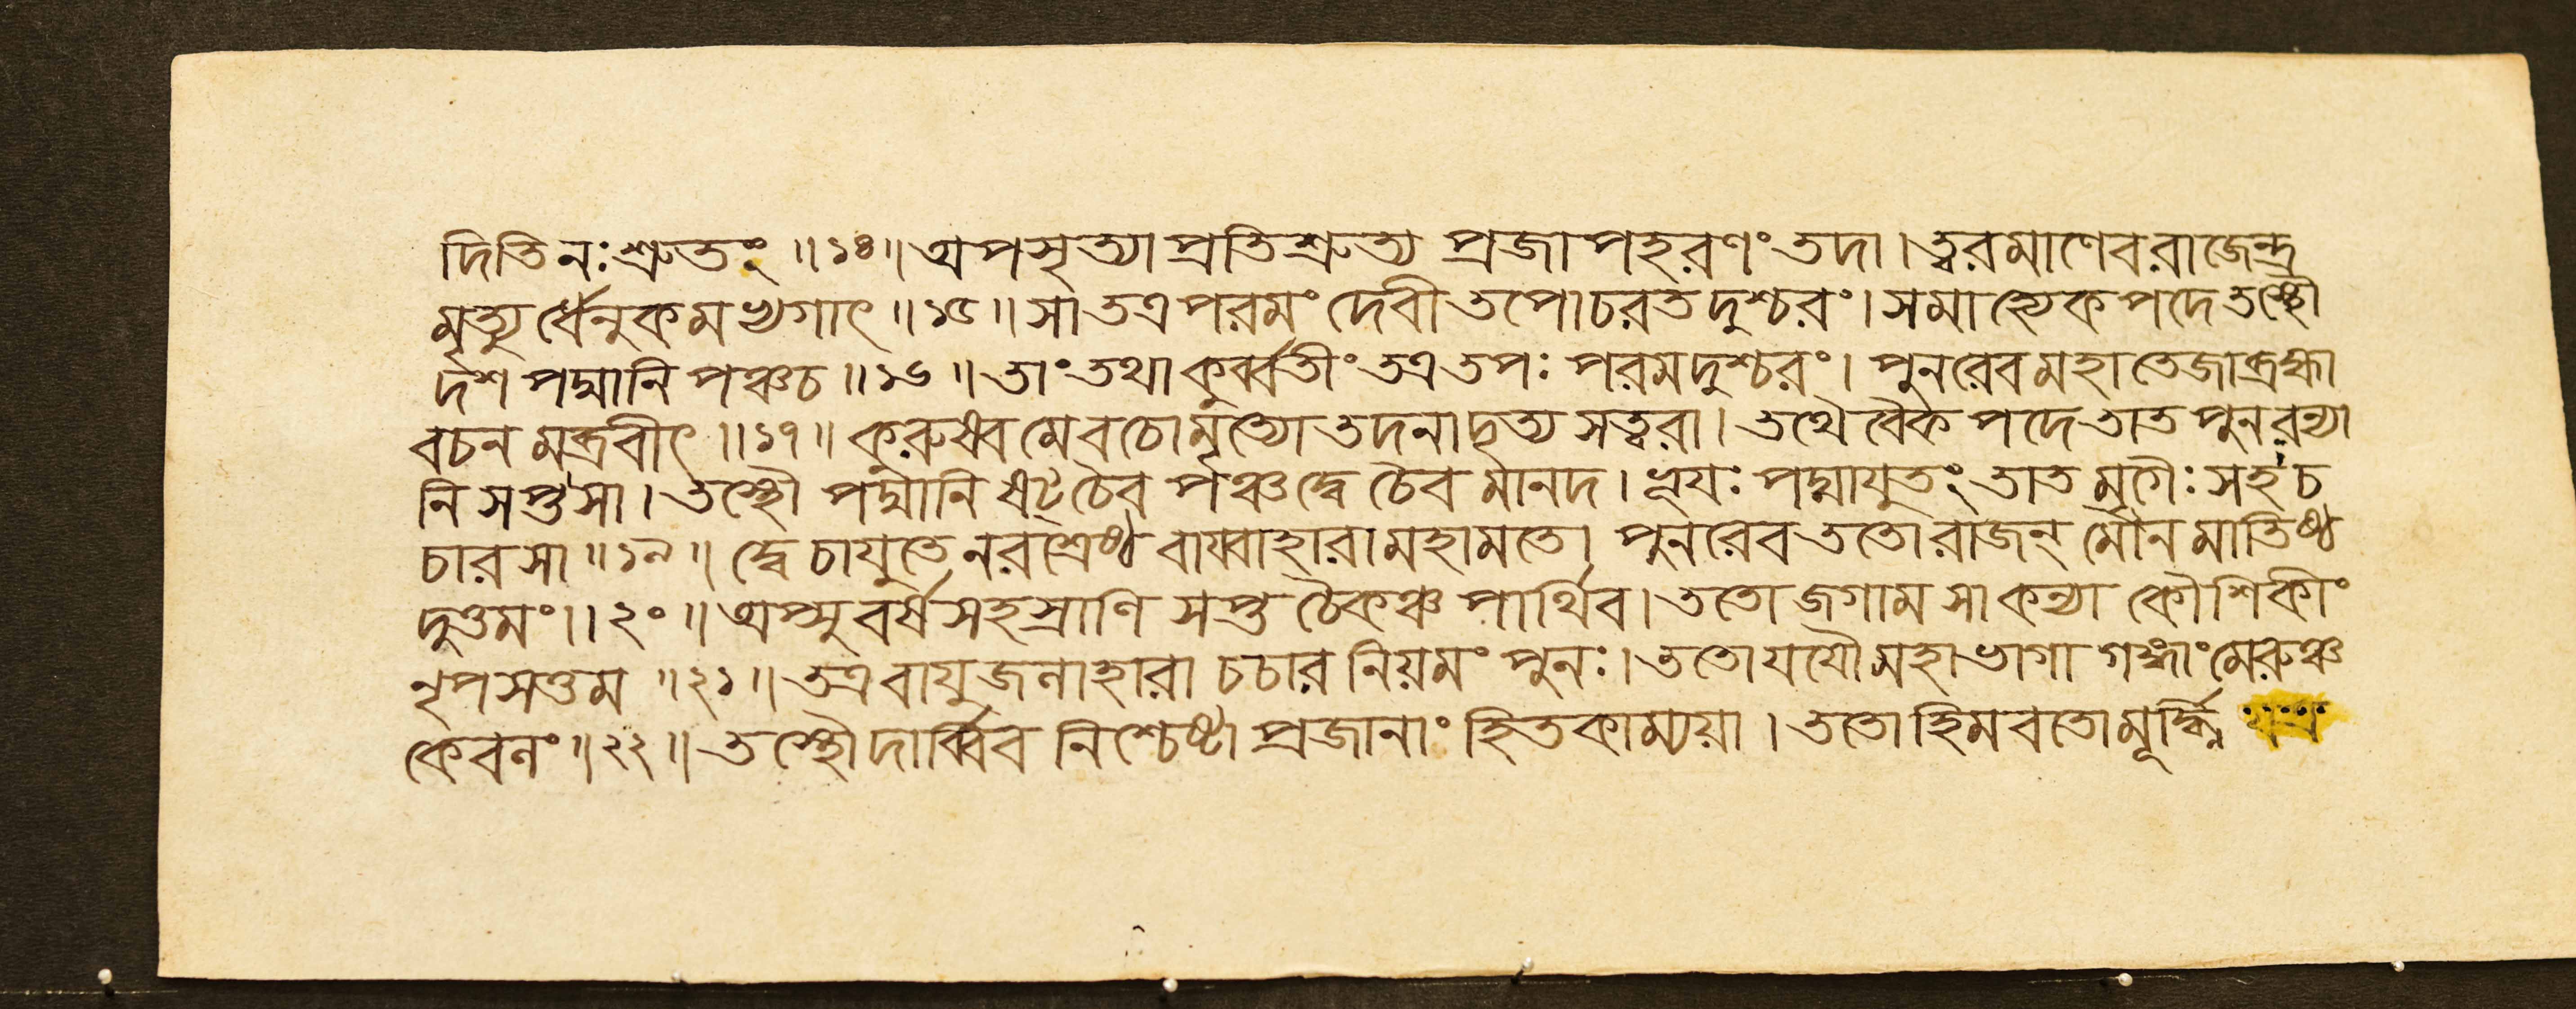 দিতি নঃ শ্রুতং ॥ ১৪ ॥ অপসৃত্যা প্রতিশ্রুত্য প্রজাপহরণং তদা । ত্বরমাণেব রাজেন্দ্র
মৃত্যু র্ধেনুকমখ্যগাৎ ॥ ১৫ ॥ সা তত্র পরমং দেবী তপোচরত দুশ্চরং । সমা হ্যেকপদে তস্থৌ
র্দশ পদ্মানি পঞ্চ চ ॥ ১৬ ॥ তাং তথা কুর্ব্বতীং তত্র তপঃ পরমদুশ্চরং । পুনরেব মহাতেজা ব্রহ্মা
বচনমব্রবীৎ ॥ ১৭ ॥ কুরুষ্ব মে বচো মৃত্যো তদনাদৃত্য সত্বরা । তথৈবৈকপদে তাত পুনরন্যা
নি সপ্ত সা । তস্থৌ পদ্মানি ষট্ চৈব পঞ্চ দ্বে চৈব মানদ । ভূয়ঃ পদ্মাযুতং তাত মৃগৈঃ সহ চ
চার সা ॥ ১৯ ॥ দ্বে চাযুতে নরশ্রেষ্ঠ বায়্বাহারা মহামতে । পুনরেব ততো রাজন্ মৌনমাতিষ্ঠ
দুত্তমং ॥ ২০ ॥ অপ্সু বর্ষসহস্রাণি সপ্ত চৈকঞ্চ পার্থিব । ততো জগাম সা কন্যা কৌশিকীং
নৃপসত্তম ॥ ২১ ॥ তত্র বায়ুজলাহারা চচার নিয়মং পুনঃ । ততো যযৌ মহাভাগা গঙ্গাং মেরুঞ্চ
কেবলং ॥ ২২ ॥ তস্থৌ দার্ব্বিব নিশ্চেষ্টা প্রজানাং হিতকাম্যয়া । ততো হিমবতো মূর্দ্ধ্নি